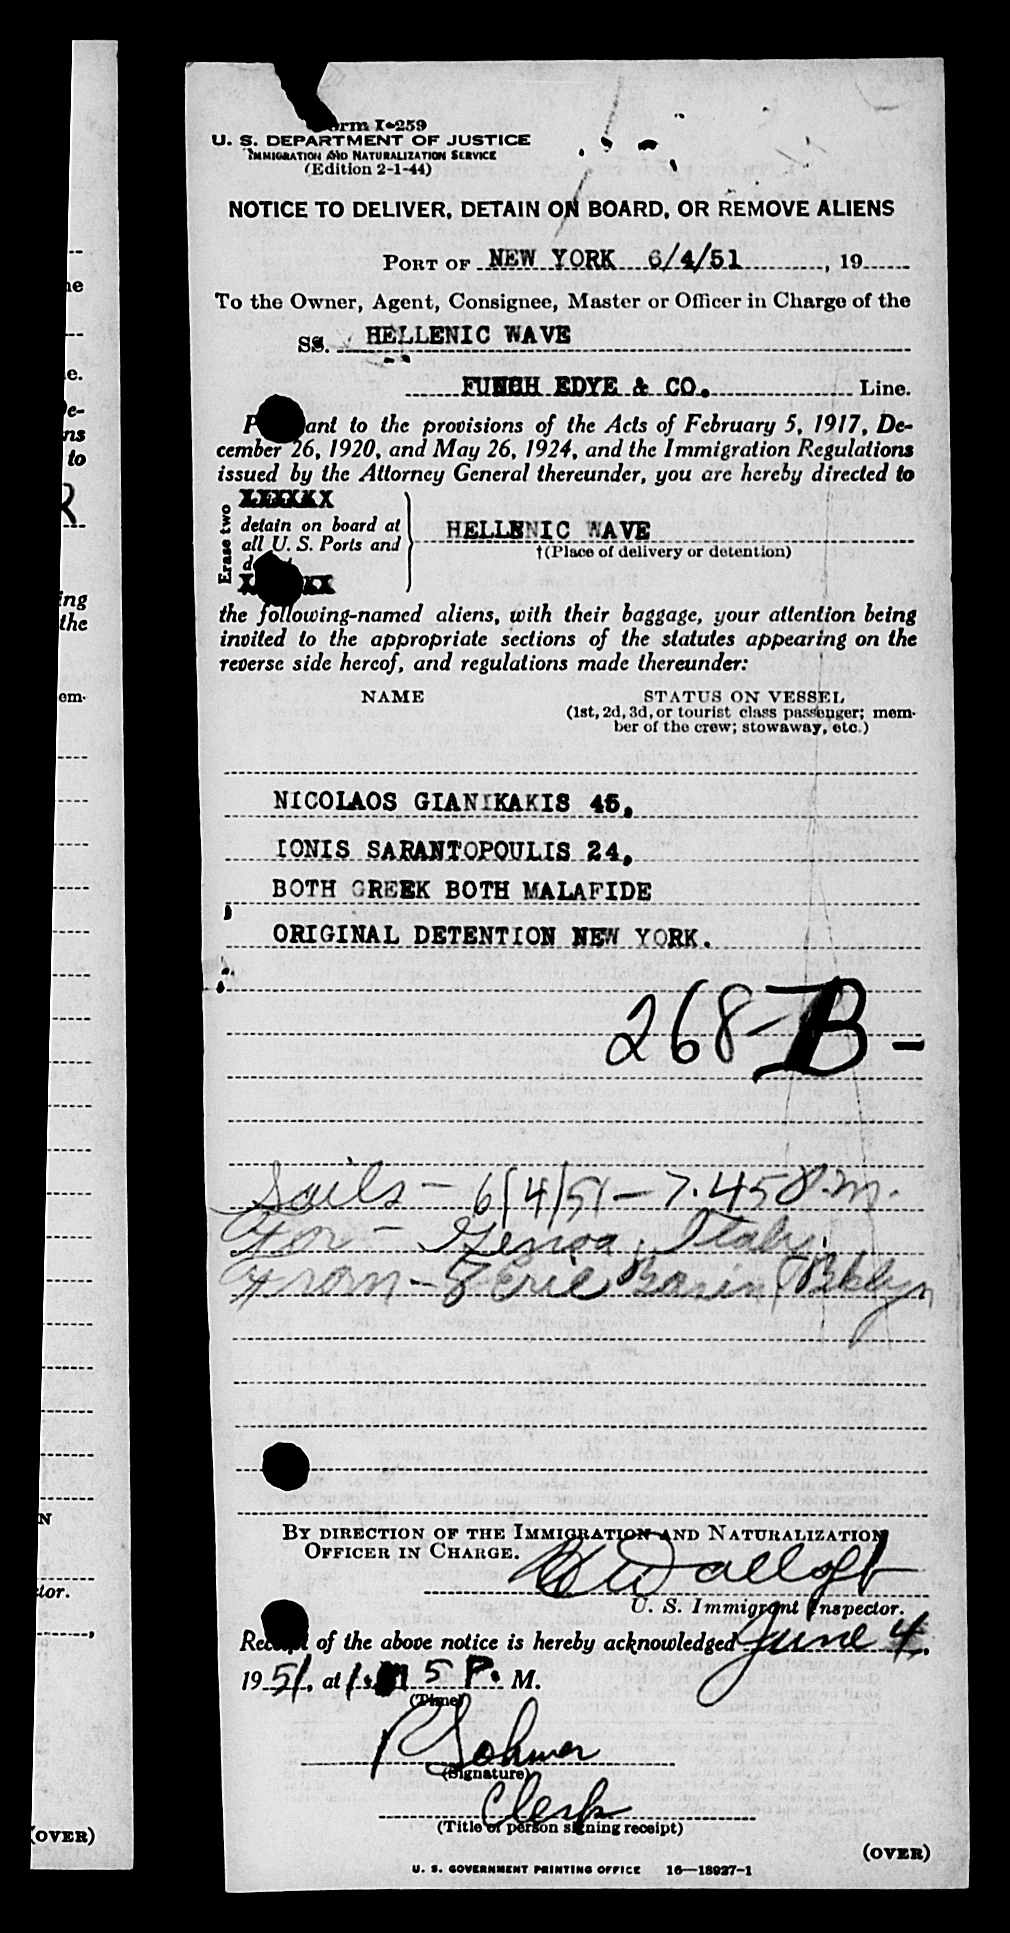 Form I-259
U. S. DEPARTMENT OF JUSTICE
IMMIGRATION AND NATURALIZATION SERVICE
(Edition 2-1-44)
NOTICE TO DELIVER, DETAIN ON BOARD, OR REMOVE ALIENS
PORT OF NEW YORK 6/4/51, 19
To the Owner, Agent, Consignee, Master or Officer in Charge of the
SS. HELLENIC WAVE
FUNCH EDYE & CO. Line.
Pursuant to the provisions of the Acts of February 5, 1917, De-
cember 26, 1920, and May 26, 1924, and the Immigration Regulations
issued by the Attorney General thereunder, you are hereby directed to
Erase two
XXXXXX
detain on board at
all U. S. Ports and
HELLENIC WAVE
†(Place of delivery or detention)
the following-named aliens, with their baggage, your attention being
invited to the appropriate sections of the statutes appearing on the
reverse side hereof, and regulations made thereunder:
NAME STATUS ON VESSEL
(1st, 2d, 3d, or tourist class passenger; mem-
ber of the crew; stowaway, etc.)
NICOLAOS GIANIKAKIS 45,
IONIS SARANTOPOULIS 24,
BOTH GREEK BOTH MALAFIDE
ORIGINAL DETENTION NEW YORK.
268-B-
Sails - 6/4/51 - 7.45 P.M.
For - Genoa, Italy.
From - Erie Basin, Bklyn
BY DIRECTION OF THE IMMIGRATION AND NATURALIZATION
OFFICER IN CHARGE.
U. S. Immigrant Inspector.
Receipt of the above notice is hereby acknowledged June 4,
1951, at 5 P. M.
(Time)
(Signature)
Clerk
(Title of person signing receipt)
(OVER)
U. S. GOVERNMENT PRINTING OFFICE 16—18927-1
(OVER)